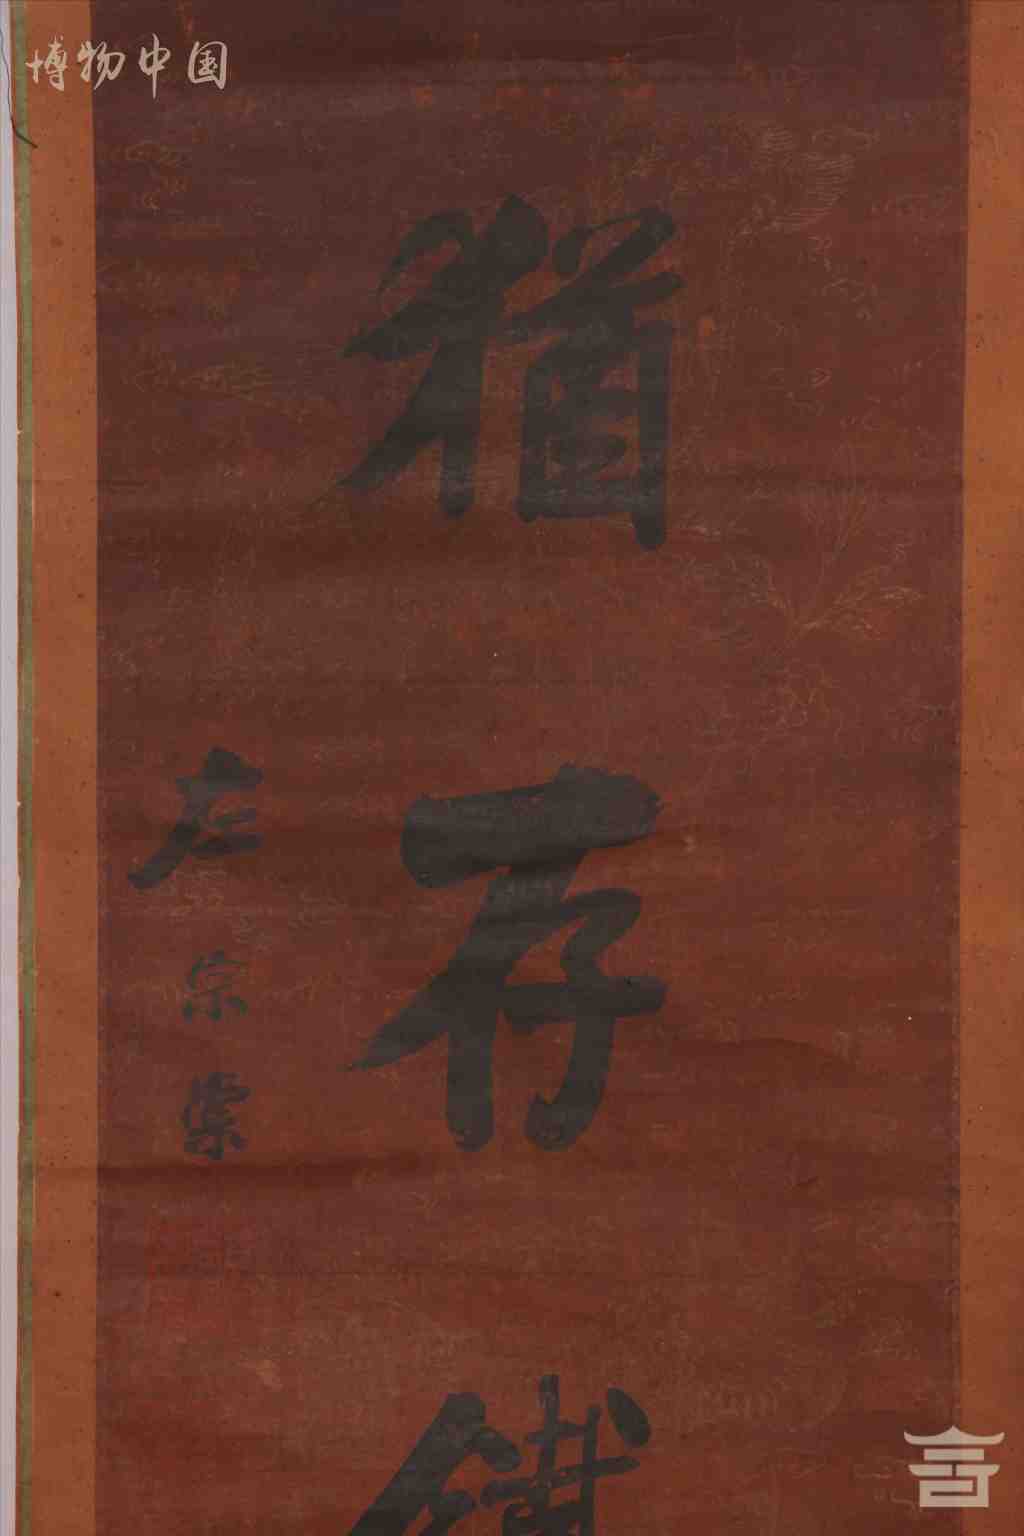 博物中国
猶存鐵
左宗棠